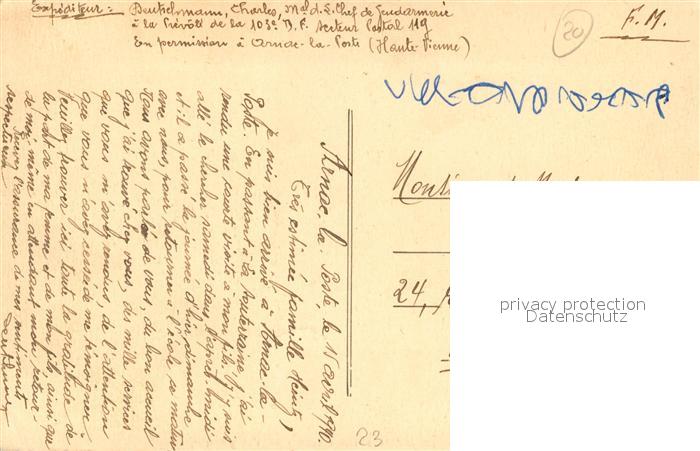 Expéditeur : Deutschmann, Charles, Mal. d. L. Chef de Gendarmerie
à la Prévôté de la 103e D. I. Secteur Postal 119
En permission à Arnac-la-Poste (Haute-Vienne)
20
F. M.
Arnac-la-Poste, le 15 avril
Très estimée famille
Je suis bien arrivé à Arnac-la-
Poste. En passant à La Souterraine, j'ai
rendu une courte visite à mon fils. J'y suis
allé le chercher samedi dans l'après-midi
et il a passé la journée d'hier, dimanche
avec nous, pour retourner à l'école ce matin
Nous avons parlé de vous, du bon accueil
que j'ai trouvé chez vous, des mille services
que vous m'avez rendus, de l'attention
que vous n'avez cessé de me témoigner
Veuillez trouver ici toute la gratitude de
la part de ma femme et de mon fils, ainsi que
de moi-même en attendant mon retour.
l'assurance de mes sentiments
respectueux
24,
23
privacy protection
Datenschutz